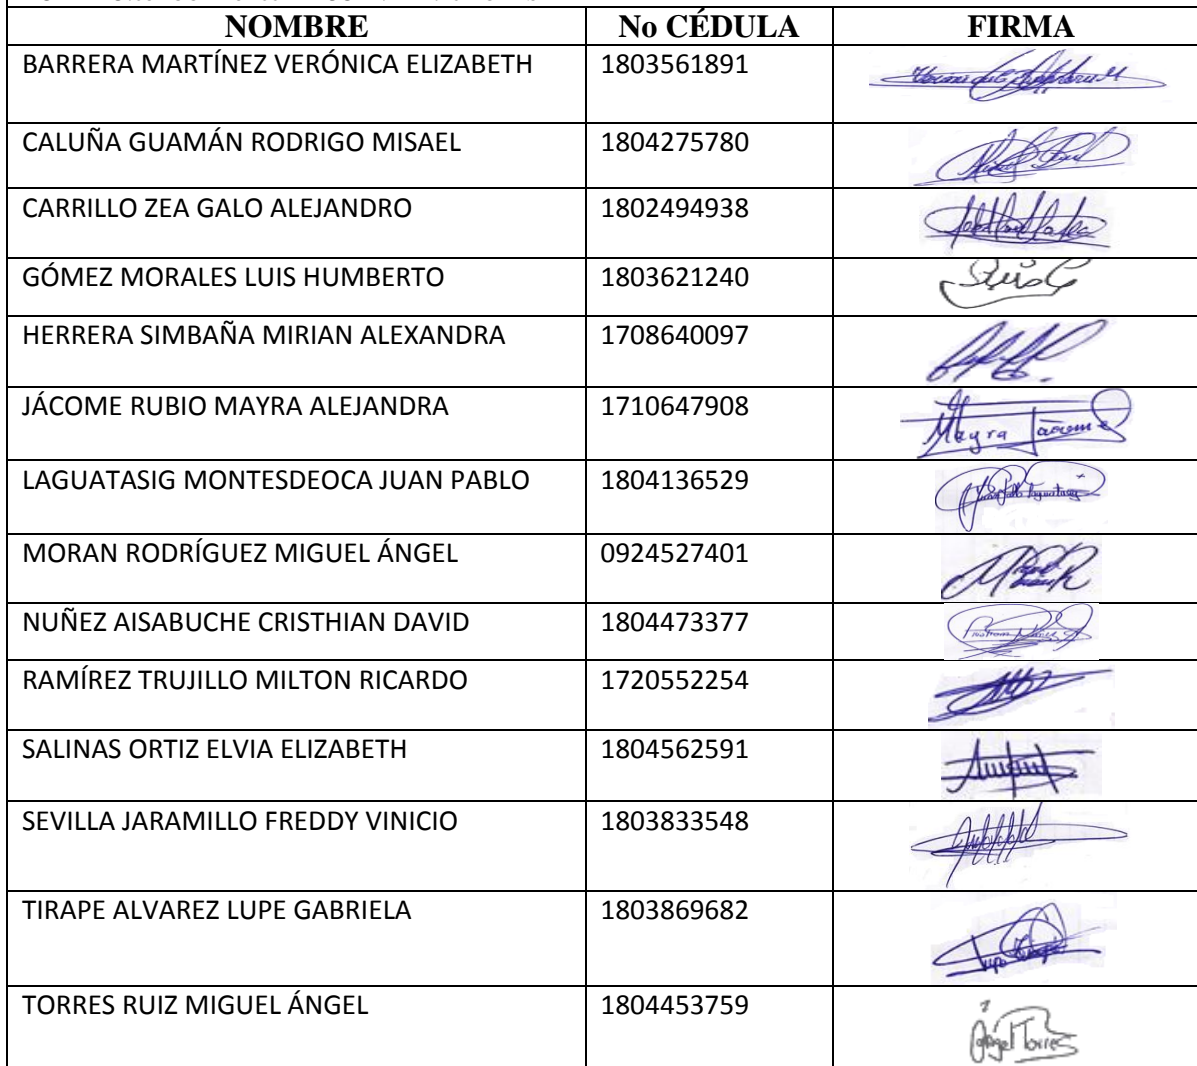 NOMBRE No CÉDULA FIRMA
BARRERA MARTÍNEZ VERÓNICA ELIZABETH 1803561891
CALUÑA GUAMÁN RODRIGO MISAEL 1804275780
CARRILLO ZEA GALO ALEJANDRO 1802494938
GÓMEZ MORALES LUIS HUMBERTO 1803621240
HERRERA SIMBAÑA MIRIAN ALEXANDRA 1708640097
JÁCOME RUBIO MAYRA ALEJANDRA 1710647908 Mayra Jácome
LAGUATASIG MONTESDEOCA JUAN PABLO 1804136529
MORAN RODRÍGUEZ MIGUEL ÁNGEL 0924527401
NUÑEZ AISABUCHE CRISTHIAN DAVID 1804473377
RAMÍREZ TRUJILLO MILTON RICARDO 1720552254
SALINAS ORTIZ ELVIA ELIZABETH 1804562591
SEVILLA JARAMILLO FREDDY VINICIO 1803833548
TIRAPE ALVAREZ LUPE GABRIELA 1803869682
TORRES RUIZ MIGUEL ÁNGEL 1804453759 Ángel Torres